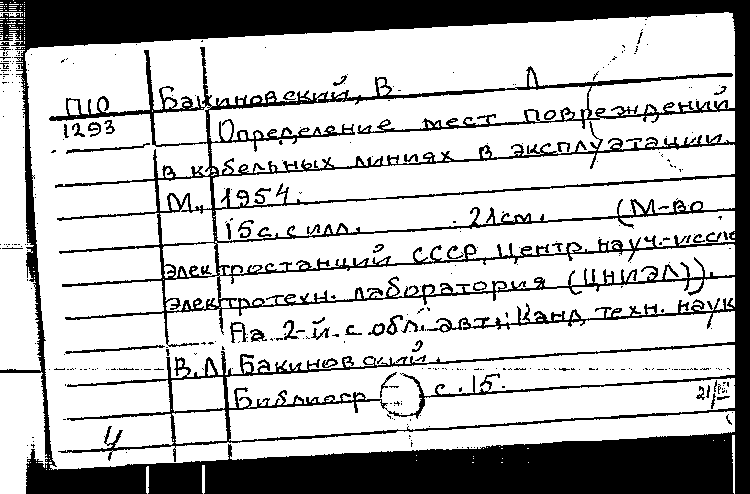 П10 Бакиновский, В Л
1293 Определение мест повреждений
в кабельных линиях в эксплуатации.
М., 1954.
15 с. с илл. 21 см. (М-во
электростанций СССР. Центр. науч.-иссле
электротехн. лаборатория (ЦНИЭЛ)).
На 2-й с обл. авт.: Канд. техн. наук
В. Л. Бакиновский.
Библиогр с. 15.
21/III
4